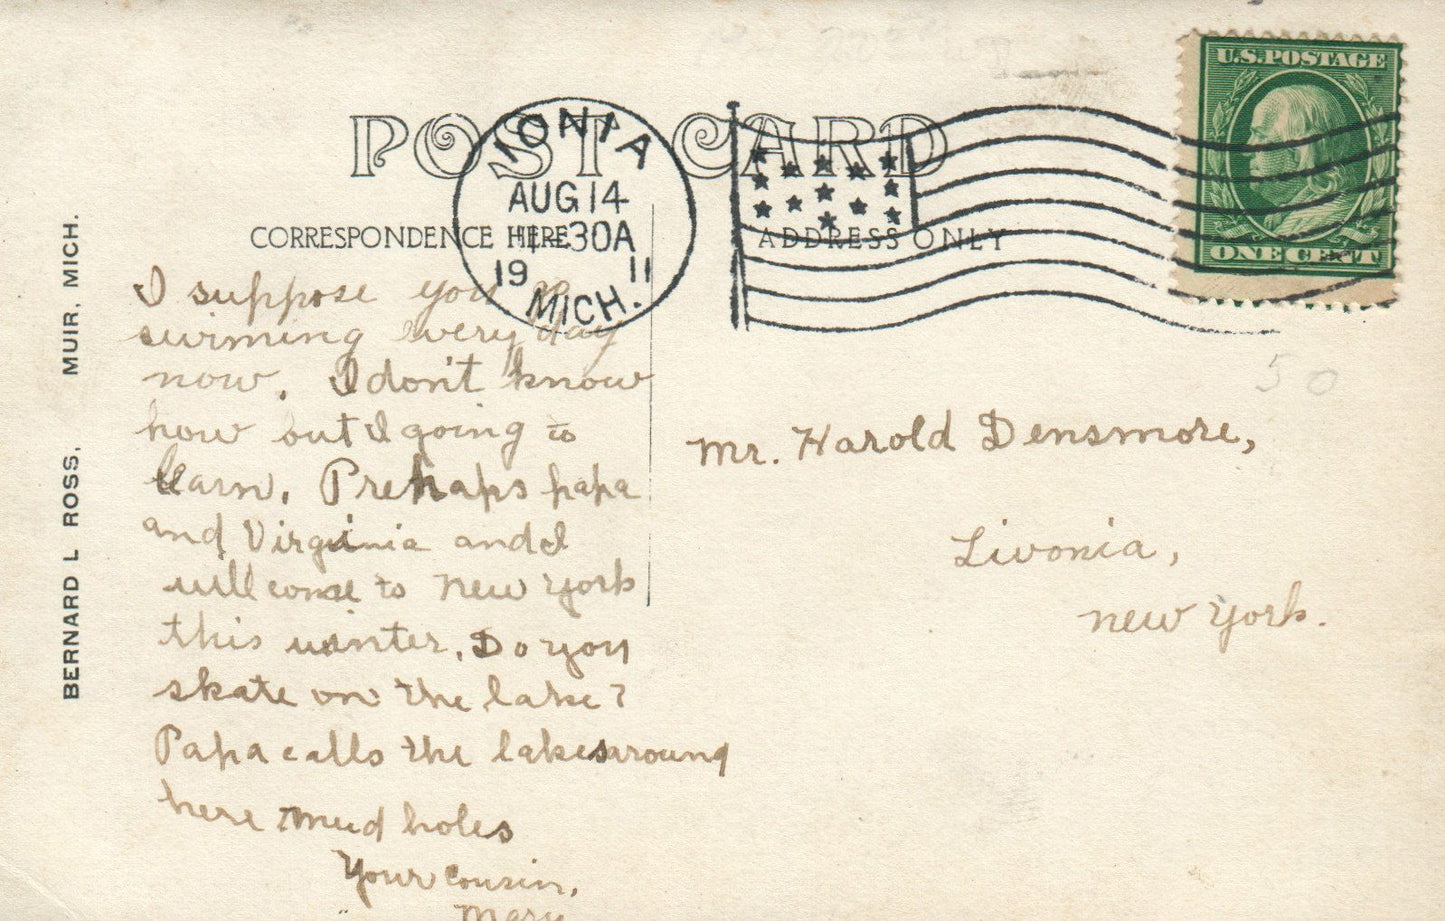 U.S. POSTAGE
ONE CENT
POST CARD
IONIA
AUG 14
30A
19 11
MICH.
CORRESPONDENCE HERE
ADDRESS ONLY
BERNARD L ROSS, MUIR, MICH.
I suppose you go
swiming every day
now. I don't know
how but I going to
learn. Prehaps papa
and Virginia and I
will come to new york
this winter. Do you
skate on the lake?
Papa calls the lakes around
here mud holes
Your cousin,
Mary
50
Mr. Harold Densmore,
Livonia,
new york.